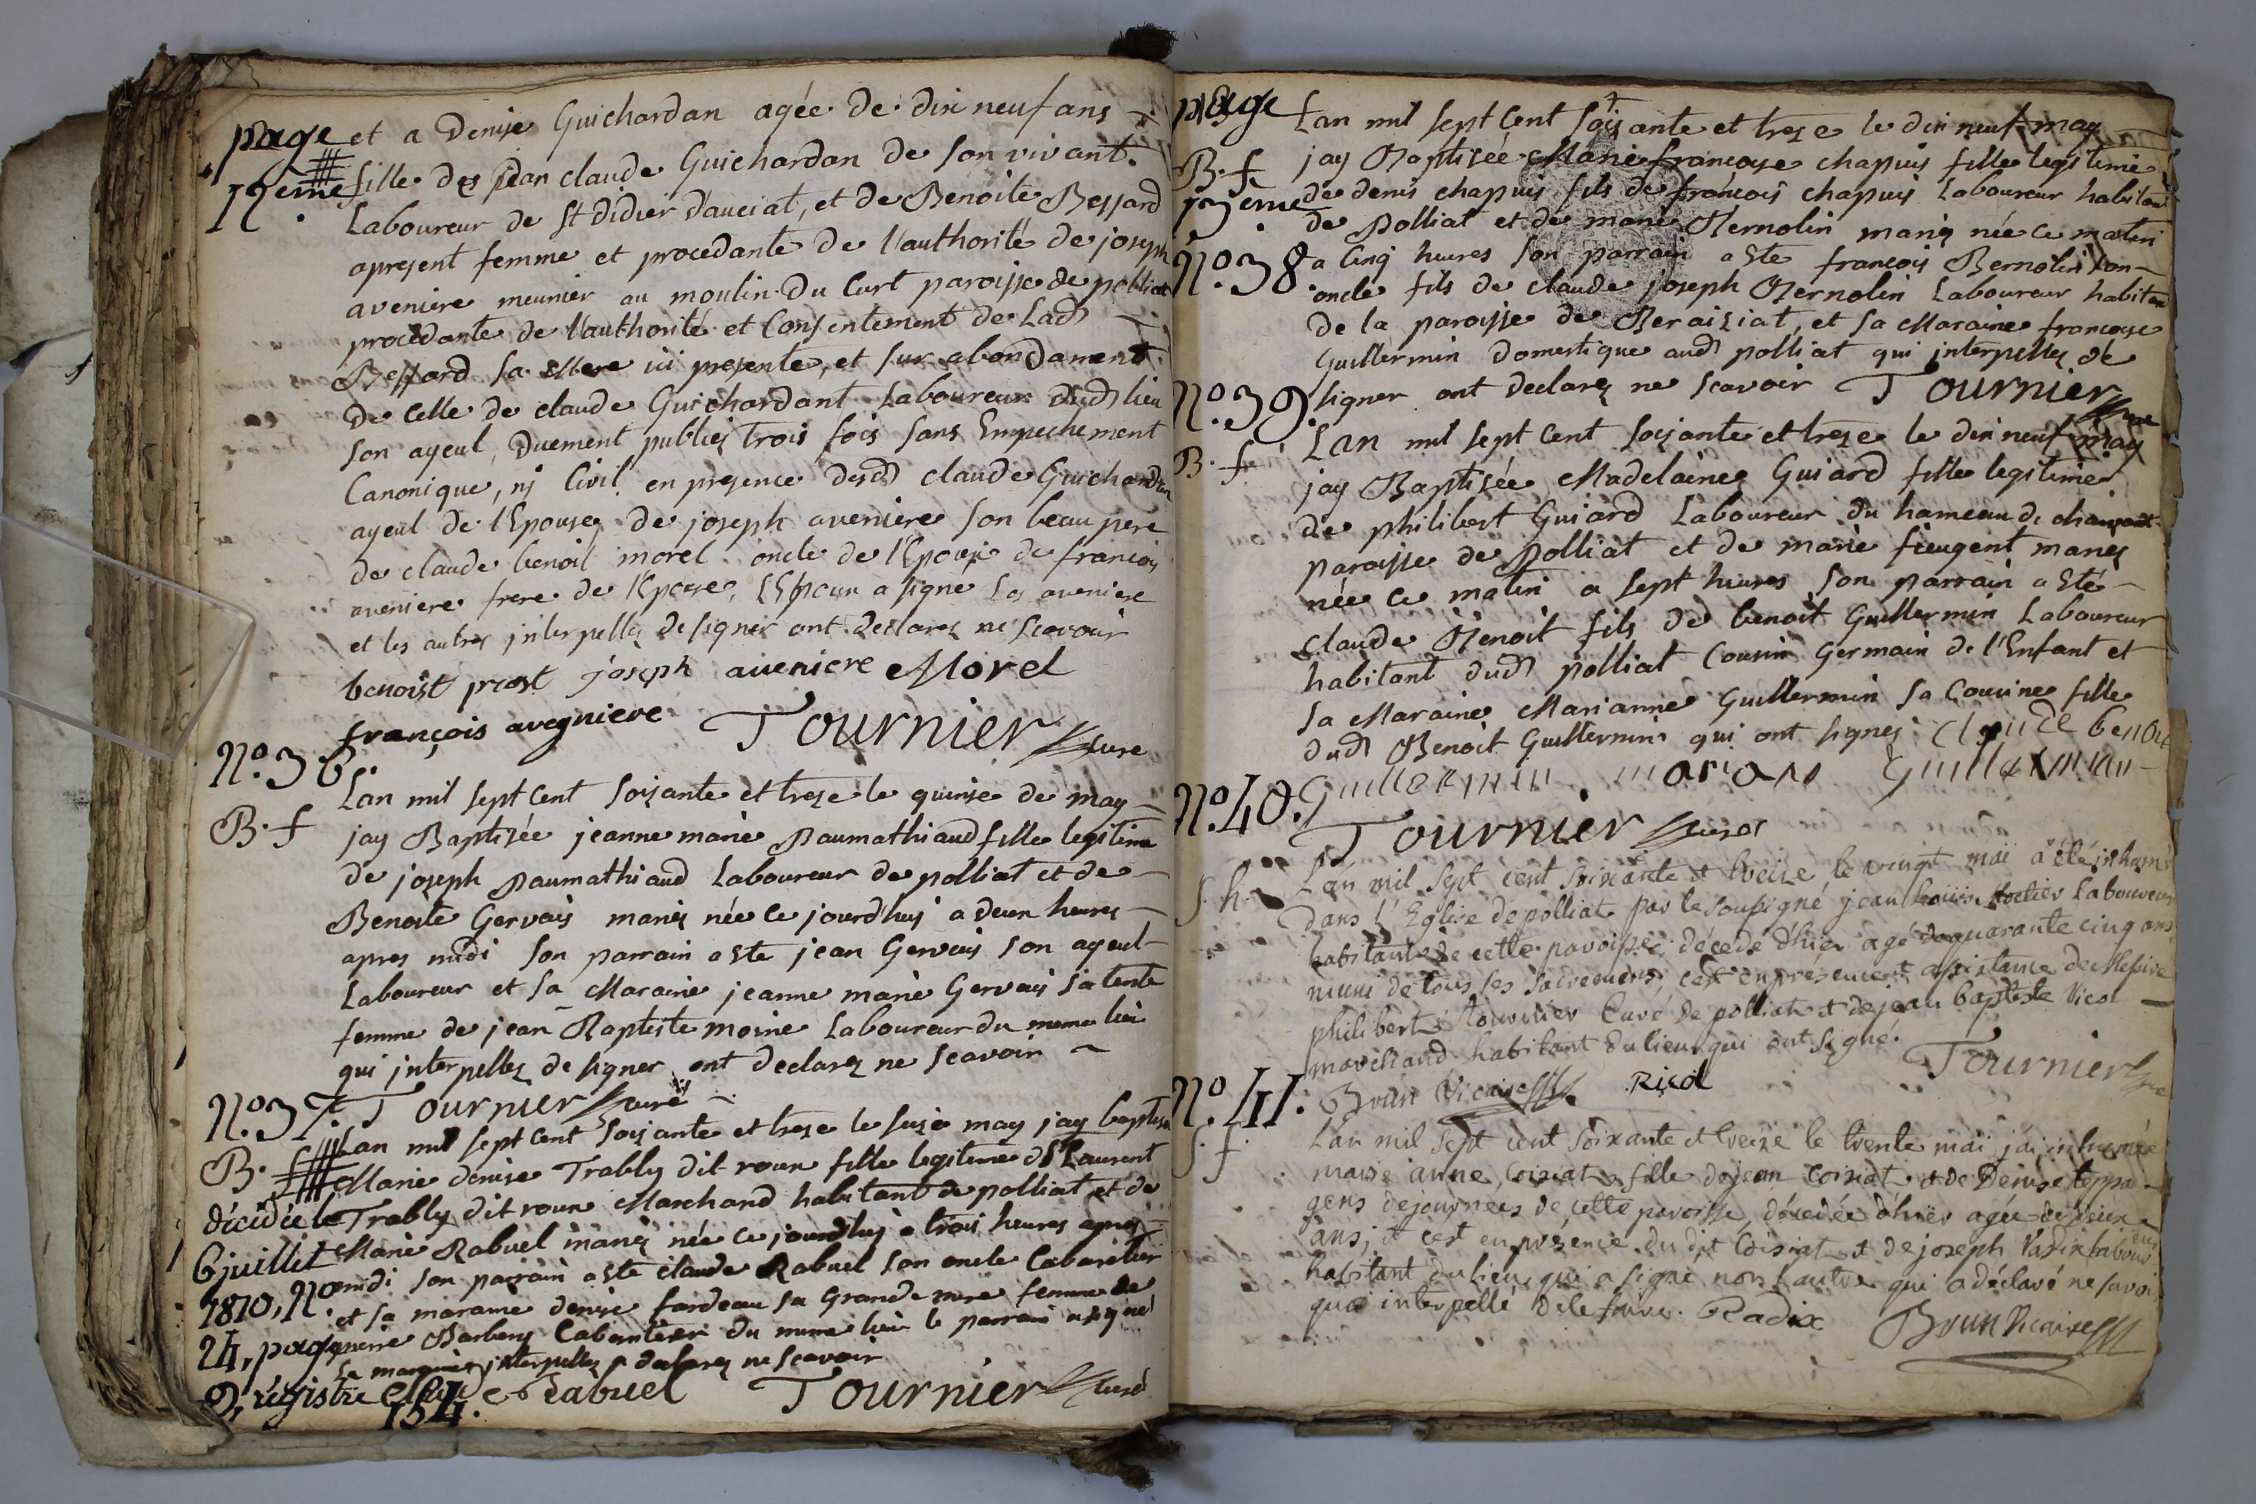 page
12eme.
et a Denise Guichardan agée de dix neuf ans
fille de jean claude Guichardan de son vivant
Laboureur de St didier d'auciat, et de Benoite Bessard
apresent femme et procedante de l'authorité de joseph
aveniere meunier au moulin du Curt paroisse de polliat
procedante de l'authorité et Consentement de Lad
Bessard sa Mere ici presente, et sur abondament
de celle de claude Guichardant Laboureur dud lieu
son ayeul, Duement publiez trois fois sans Empechement
Canonique, nj Civil en presence desd claude Guichardan
ayeul de l'Epouse, de joseph aveniere son beau pere
de claude benoit morel oncle de l'Epouse de francois
aveniere frere de l'Epouse, L'Epoux a signe Les aveniere
et les autres interpellez de signer ont declarez ne scavoir
benoist prost joseph aveniere Morel
françois avegniere Tournier Curé
No. 36.
B. f
Lan mil sept cent soizante et treze le quinze de may
jay Baptizée jeanne marie Paumathiaud fille legitime
de joseph Paumathiaud Laboureur de polliat et de
Benoite Gervais mariez née ce jourdhuj a deux heures
apres midi son parrain a Ete jean Gervais son ayeul
Laboureur et sa Maraine jeanne marie Gervais sa tente
femme de jean Baptiste moine Laboureur du meme lieu
qui interpellez de signer ont declarez ne scavoir
Tournier Curé
No. 37.
B. f
Lan mil sept cent soizante et treze le seize may jay baptisée
Marie denise Trably dit roux fille legitime de St Laurent
Trably dit roux Marchand habitant de polliat et de
Marie Rabuel mariez née ce jourdhuj a trois heures apres
midi son parrain a Ete claude Rabuel son oncle Cabaretier
et sa maraine denise fardeau sa Grande mere femme de
pierre Barberj Cabaretier du meme lieu le parrain a signé
La maraine interpellez a declarez ne scavoir
décidée le
6 juillet
1810, No
24, page
9, régistre
154.
Rabuel Tournier Curé
page
13eme.
No. 38.
B. f
Lan mil sept Cent soizante et treze le dix neuf may
jay Baptisée Marie francoise chapuis fille legitime
de denis chapuis fils de francois chapuis Laboureur habitant
de Polliat et de marie Bernolin mariez née ce matin
a Cinq heures son parrain a Ete francois Bernolin son
oncle fils de claude joseph Bernolin Laboureur habitant
de la paroisse de Beraiziat, et sa Maraine francoise
Guillermin domestique aud polliat qui interpellez de
signer ont declarez ne scavoir Tournier Curé
No. 39.
B. f
Lan mil sept cent soizante et treze le dix neuf may
jay Baptisée Madelaine Guiard fille legitime
de philibert Guiard Laboureur du hameau de
paroisse de Polliat et de marie fieugent mariez
née ce matin a sept heures son parrain a Eté
claude Benoit fils de benoit Guillermin Laboureur
habitant dud polliat Cousin Germain de l'Enfant et
sa Maraine Marianne Guillermin sa Cousine fille
dud Benoit Guillermin qui ont signez claude benoit
Guillermin mariane Guillermin
Tournier Curé
No. 40.
s. h.
L'an mil sept cent soixante et treize le vingt mai a été inhumé
dans l'Eglise de polliat par le soussigné jean Louis Laboureur
habitant de cette paroisse, décédé d'hier agé de quarante cinq ans
muni de tous ses sacremens, c'est en présence et assistance de Messire
philibert Tournier Curé de polliat et de jean baptiste Vicol
marchand habitant du lieu qui ont signé.
Brun Vicaire Ricol Tournier Curé
No. 41.
s. f
L'an mil sept cent soixante et treize le trente mai j'ai inhumée
marie anne Coiziat fille de jean Coiziat et de Denise
gens de journées de cette paroisse, décedée d'hier agée de deux
ans, et c'est en présence du dit Coiziat et de joseph Vadix Laboureur
habitant du lieu qui a signé non l'autre qui a déclaré ne savoir
quoi interpellé de le faire. Radix Brun Vicaire